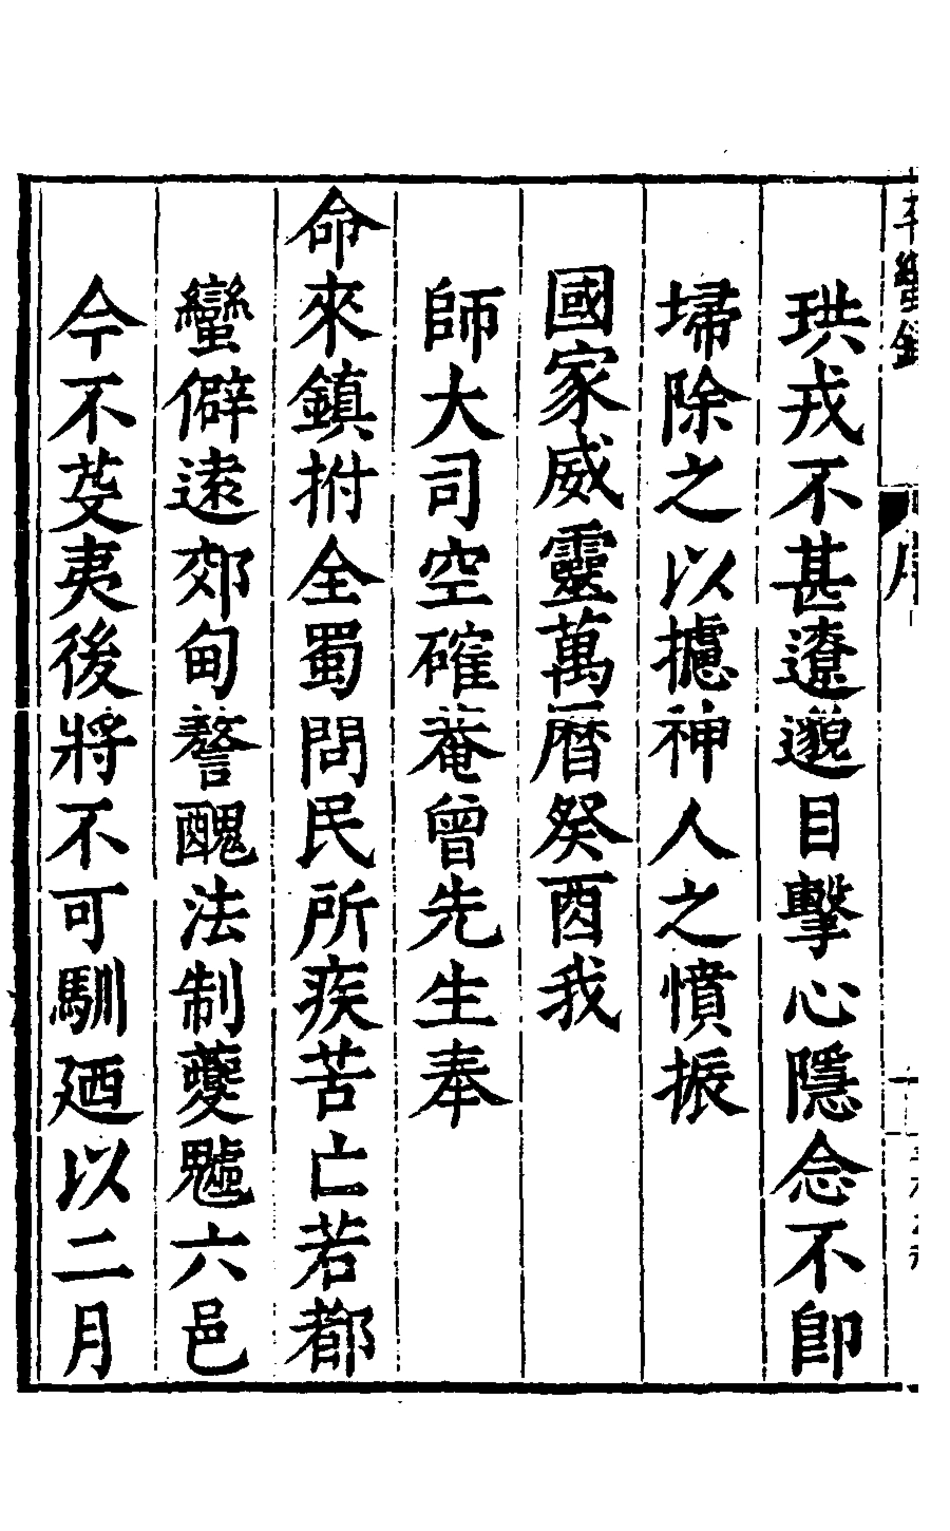 珙戎不甚遼邈目擊心隱念不卽
埽除之以攄神人之憤振
國家威靈萬曆癸酉我
師大司空確菴曾先生奉
命來鎮拊全蜀問民所疾苦亡若都
蠻僻遠郊甸謷醜法制夔魖六邑
今不芟夷後將不可馴廼以二月